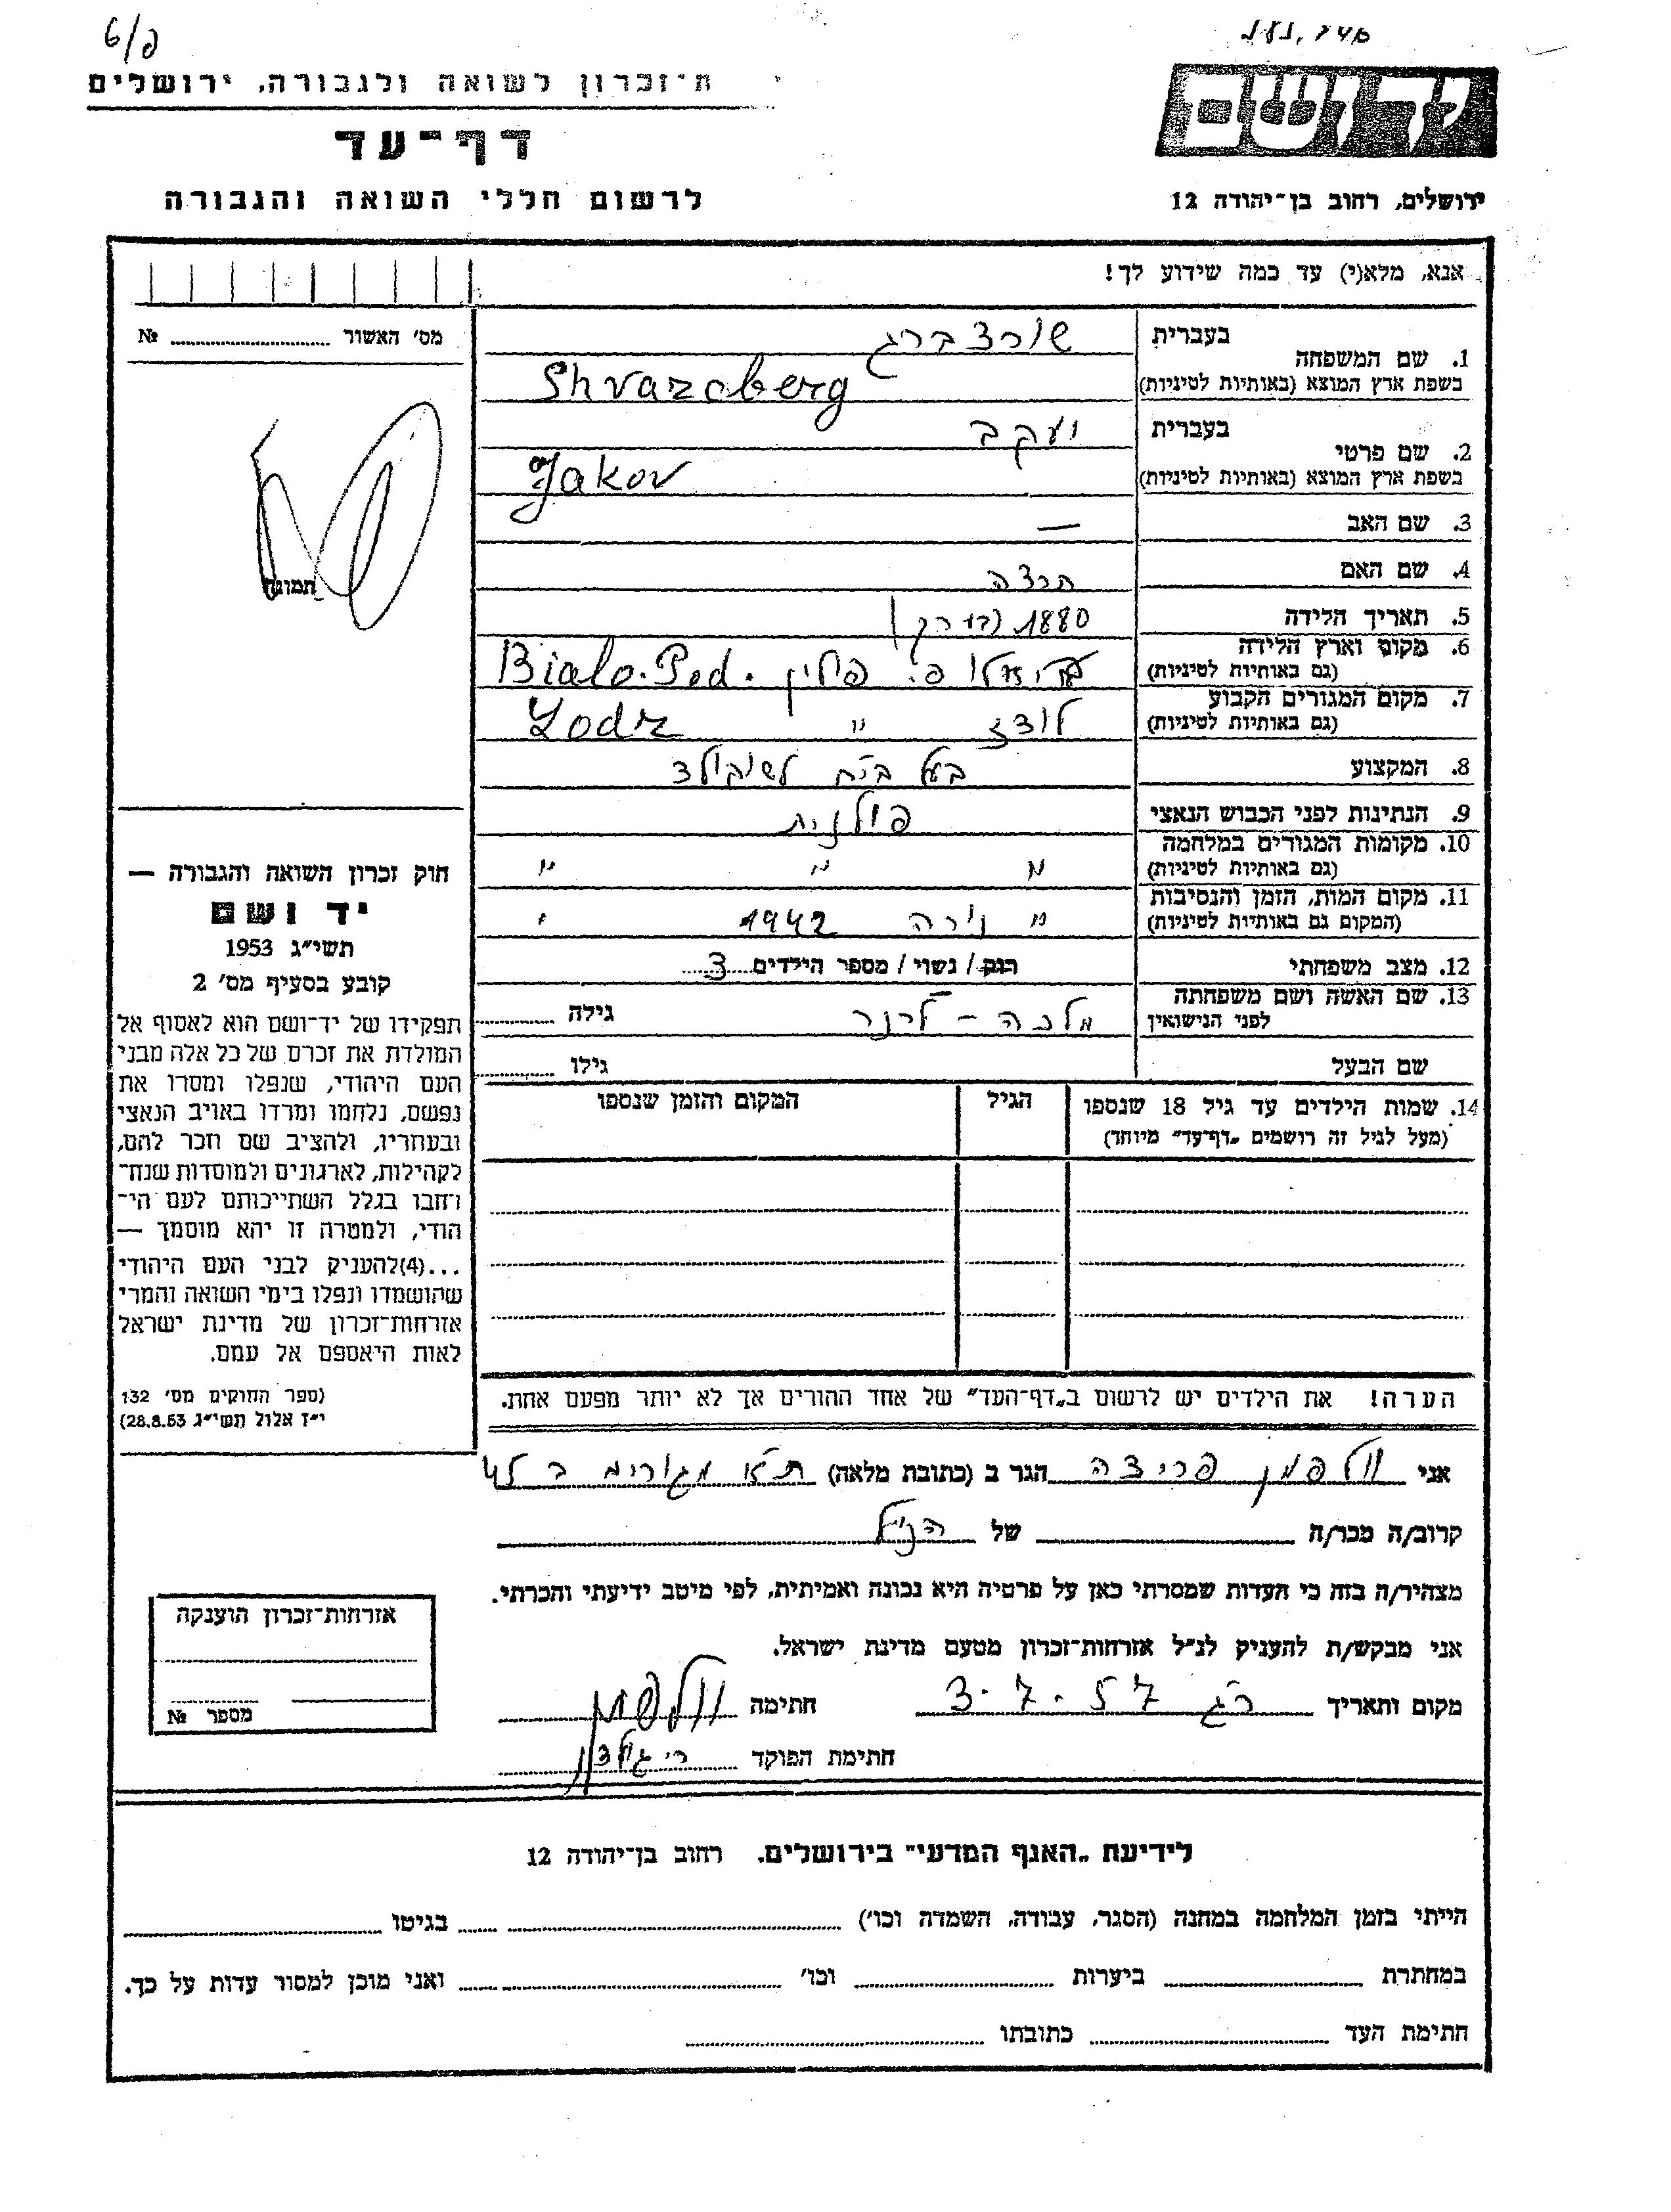 6/פ
ת־זכרון לשואה ולגבורה, ירושלים
דף־עד
לרשום חללי השואה והגבורה
יד ושם
ירושלים, רחוב בן־יהודה 12
אנא, מלא(י) עד כמה שידוע לך!
מס׳ האשור № 
1. שם המשפחה בעברית שורצברג
בשפת ארץ המוצא (באותיות לטיניות) Shvarcberg
2. שם פרטי בעברית יעקב
בשפת ארץ המוצא (באותיות לטיניות) Jakov
3. שם האב —
4. שם האם תרצה
5. תאריך הלידה 1880 (בורק)
6. מקום וארץ הלידה
(גם באותיות לטיניות) פ. פולין. Bialo. Pod.
7. מקום המגורים הקבוע
(גם באותיות לטיניות) לודז " Lodz
8. המקצוע בעל בי״ח לשוקולד
9. הנתינות לפני הכבוש הנאצי פולנית
10. מקומות המגורים במלחמה
(גם באותיות לטיניות) " " "
11. מקום המות, הזמן והנסיבות
(המקום גם באותיות לטיניות) " נורה 1942 "
12. מצב משפחתי רווק / נשוי / מספר הילדים 3
13. שם האשה ושם משפחתה
לפני הנישואין מלכה – לרנר גילה
שם הבעל גילו
14. שמות הילדים עד גיל 18 שנספו הגיל המקום והזמן שנספו
(מעל לגיל זה רושמים „דף־עד״ מיוחד)
הערה! את הילדים יש לרשום ב„דף־העד״ של אחד ההורים אך לא יותר מפעם אחת.
תמונה
חוק זכרון השואה והגבורה —
יד ושם
תשי״ג 1953
קובע בסעיף מס׳ 2
תפקידו של יד־ושם הוא לאסוף אל
המולדת את זכרם של כל אלה מבני
העם היהודי, שנפלו ומסרו את
נפשם, נלחמו ומרדו באויב הנאצי
ובעוזריו, ולהציב שם וזכר להם,
לקהילות, לארגונים ולמוסדות שנח־
רבו בגלל השתייכותם לעם הי־
הודי, ולמטרה זו יהא מוסמך —
...(4)להעניק לבני העם היהודי
שהושמדו ונפלו בימי השואה והמרי
אזרחות־זכרון של מדינת ישראל
לאות היאספם אל עמם.
(ספר החוקים מס׳ 132
י״ז אלול תשי״ג 28.8.53)
אני וולפמן פריצה הגר ב (כתובת מלאה) ת״א מגורים ב
קרוב/ה מכר/ה של הנ״ל
מצהיר/ה בזה כי העדות שמסרתי כאן על פרטיה היא נכונה ואמיתית, לפי מיטב ידיעתי והכרתי.
אני מבקש/ת להעניק לנ״ל אזרחות־זכרון מטעם מדינת ישראל.
מקום ותאריך ר״ג 3.7.57 חתימה וולפמן
חתימת הפוקד
אזרחות־זכרון הוענקה
מספר №
לידיעת „האגף המדעי״ בירושלים. רחוב בן־יהודה 12
הייתי בזמן המלחמה במחנה (הסגר, עבודה, השמדה וכו׳) בגיטו
במחתרת ביערות וכו׳ ואני מוכן למסור עדות על כך.
חתימת העד כתובתו